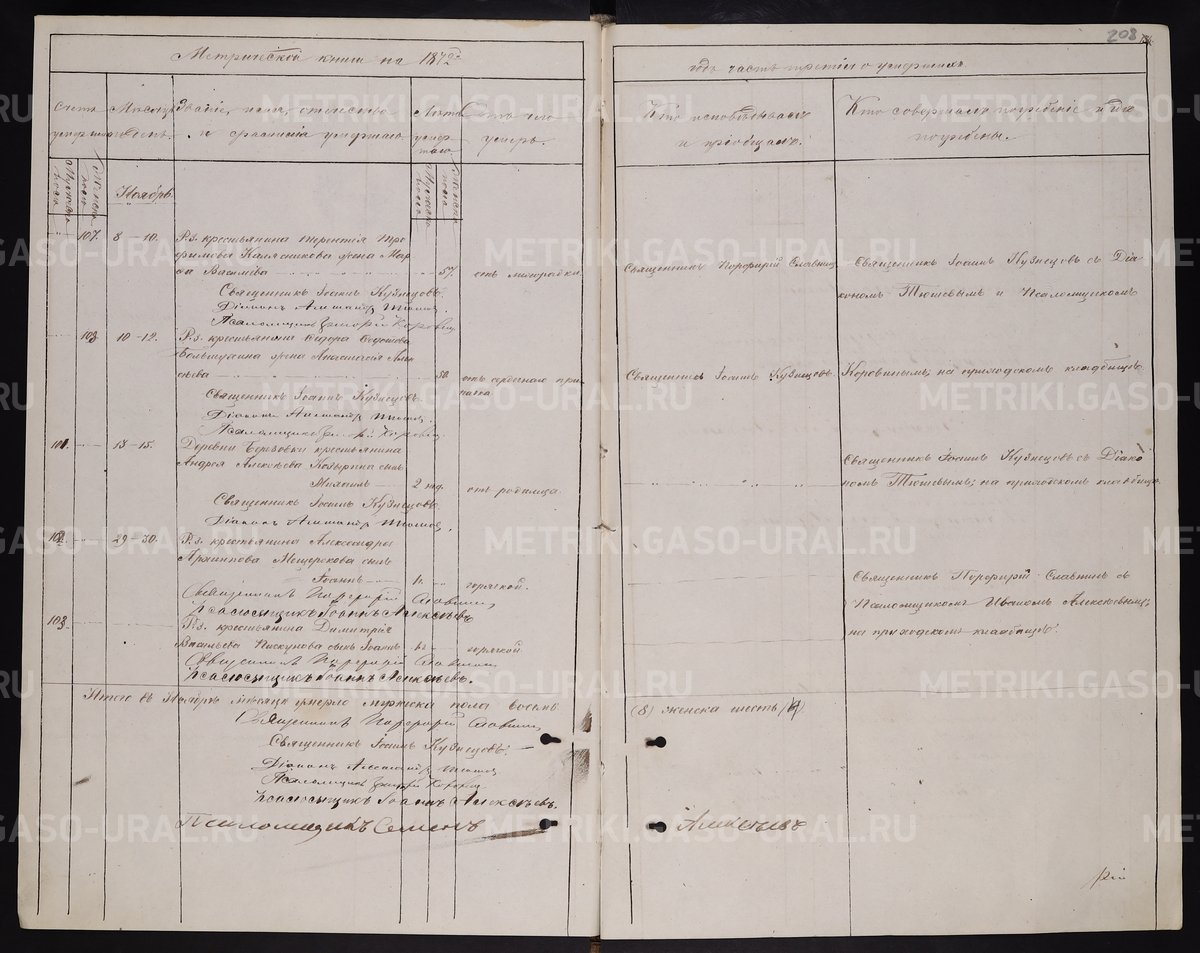 208
Метрической книги на 1872й
годъ часть третія о умершихъ
Счетъ умершихъ
Мужеска пола
Женска пола
Мѣсяцъ и день.
Званіе, имя, отчество
и фамилія умершаго.
Лѣта умершаго
Мужеска пола
Женска пола
Отъ чего
умеръ.
Кто исповѣдывалъ
и пріобщалъ.
Кто совершалъ погребеніе и гдѣ
погребены.
Ноябрь.
107. 8 – 10. Р.з. крестьянина Терентія Тро-
фимова Калясникова жена Мар-
Васильева 57. отъ лихорадки.
Священникъ Порфирій Славнинъ
Священникъ Іоаннъ Кузнецовъ съ Діа-
кономъ Тюшевымъ и Псаломщикомъ
Священникъ Іоаннъ Кузнецовъ.
Діаконъ Александръ Тюшевъ.
Псаломщикъ Коровинъ.
108 10 – 12. Р.з. крестьянина Ѳедора
жена Анастасія Алек-
сѣева 50. отъ
Священникъ Іоаннъ Кузнецовъ.
Коровинымъ, на приходскомъ кладбищѣ.
Священникъ Іоаннъ Кузнецовъ.
Діаконъ Александръ Тюшевъ.
Псаломщикъ Коровинъ.
101. 13 – 15. Деревни Березовки крестьянина
Андрея Алексѣева сынъ
Михаилъ 2 нед. отъ родимца.
Священникъ Іоаннъ Кузнецовъ съ Діако-
номъ Тюшевымъ; на приходскомъ кладбищѣ
Священникъ Іоаннъ Кузнецовъ.
Діаконъ Александръ Тюшевъ.
102. 29 – 30. Р.з. крестьянина Александра
Архиппова Мещерякова сынъ
Іоаннъ горячкой.
Священникъ Порфирій Славнинъ съ
Псаломщикомъ Иваномъ Алексѣевымъ
на приходскомъ кладбищѣ.
Священникъ Порфирій Славнинъ
Псаломщикъ Іоаннъ Алексѣевъ
103. Р.з. крестьянина Димитрія
Васильева Пискунова сынъ Іоаннъ горячкой
Священникъ Порфирій Славнинъ
Псаломщикъ Іоаннъ Алексѣевъ.
Итого въ Ноябрѣ мѣсяцѣ умерло мужеска пола восемь
(8) женска шесть
Священникъ Порфирій Славнинъ
Священникъ Іоаннъ Кузнецовъ.
Діаконъ Александръ Тюшевъ
Псаломщикъ Коровинъ
Псаломщикъ Іоаннъ Алексѣевъ.
Псаломщикъ Семенъ Алексѣевъ
METRIKI.GASO-URAL.RU